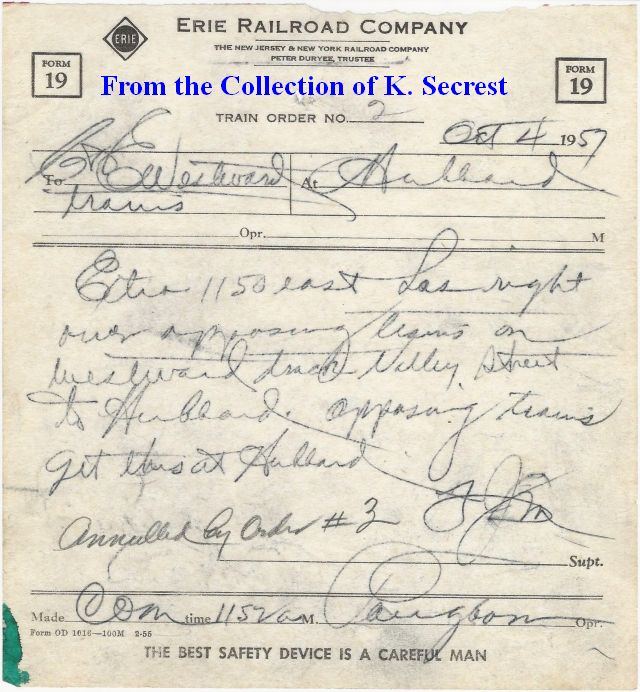 ERIE
ERIE RAILROAD COMPANY
THE NEW JERSEY & NEW YORK RAILROAD COMPANY
PETER DURYEE, TRUSTEE
FORM 19
FORM 19
From the Collection of K. Secrest
TRAIN ORDER NO. 2
Oct 4 1957
To C&E Westward At Hubbard
trains
Opr. M
Extra 1150 east has right
over opposing trains on
westward track Valley Street
to Hubbard. opposing trains
get this at Hubbard
Annulled by Order # 3
Supt.
Made Com time 1152 a M. Opr.
Form OD 1016—100M 2-55
THE BEST SAFETY DEVICE IS A CAREFUL MAN